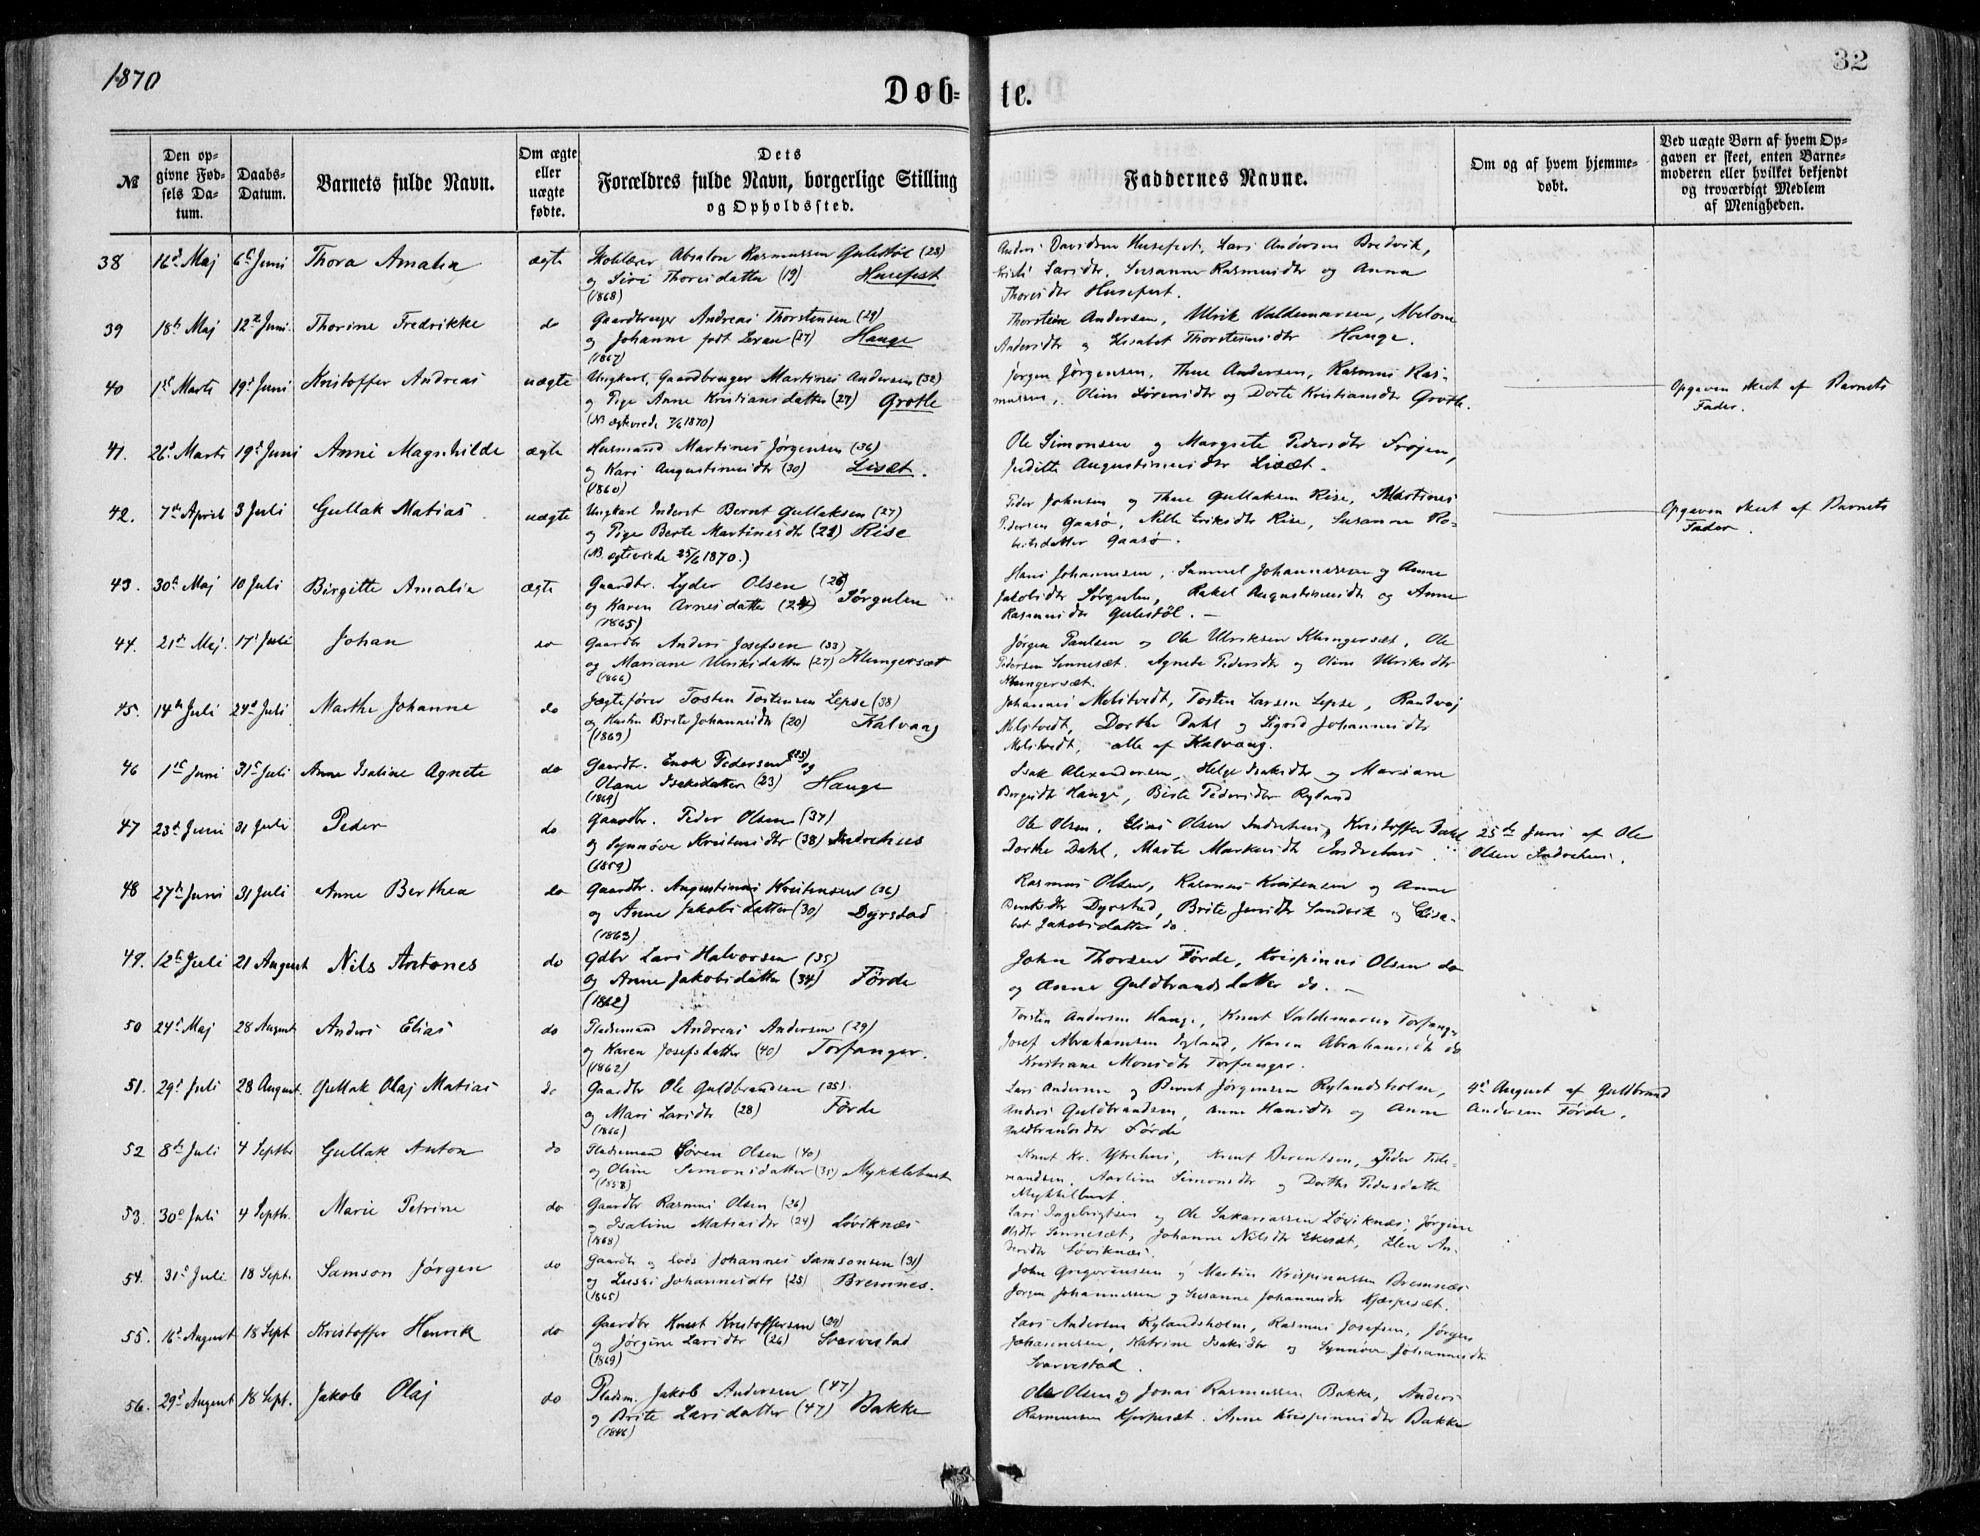 1870
Døb-
te.
32
№
Den op-
givne Fød-
sels Da-
tum.
Daabs-
Datum.
Barnets fulde Navn.
Om ægte
eller
uægte
fødte.
Dets
Forældres fulde Navn, borgerlige Stilling
og Opholdssted.
Faddernes Navne.
Om og af hvem hjemme-
døbt.
Ved uægte Børn af hvem Op-
gaven er skeet, enten Barne-
moderen eller hvilket bekjendt
og troværdigt Medlem
af Menigheden.
38 16d Maj 6te Juni Thora Amalia ægte Skolelærer Absalon Rasmussen Gulestøl (28)
og Siri Thoresdatter (19) Husefest
(1868)
Anders Davidsen Husefest, Lars Andersen Bredvik,
Larsdtr, Susanne Rasmusdtr og Anna
Thoresdtr Husefest.
39 18de Maj 12te Juni Thorine Fredrikke do Gaardbruger Andreas Thorstensen (29)
og Johanne født Levan (27) Hauge
(1867)
Thorstein Andersen, Ulrik Valdemarsen, Abelone
Andersdtr og Elisabet Thorsteinsdtr Hauge.
40 1ste Marts 19d Juni Kristoffer Andreas uægte Ungkarl, Gaardbruger Martines Andersen (32)
og Pige Anne Kristiansdatter (27) Grotle
(NB ægteviede 7/6 1870)
Jørgen Jørgensen, Thue Andersen, Rasmus Ras-
mussen, Oline Sørensdtr og Dorte Kristiansdtr Grotle.
Opgaven skeet af Barnets
Fader.
41. 26d Marts 19d Juni Anne Magnhilde ægte Husmand Martines Jørgensen (36)
og Kari Augustinusdtr (30) Lisæt.
(1860)
Ole Simonsen og Margrete Pedersdtr Frøjen,
Juditte Augustinusdtr Lisæt.
42. 7de April 3 Juli Gullak Matias uægte Ungkarl Inderst Bernt Gullaksen (27)
og Pige Berte Martinesdtr (21) Rise
(NB ægteviede 25/6 1870.)
Peder Johnsen og Thue Gullaksen Rise, Martines
Pedersen Gaasø, Nelle Eriksdtr Rise, Susanne Ro-
bertsdatter Gaasø.
Opgaven skeet af Barnets
Fader.
43. 30te Maj 10 Juli Birgitte Amalia ægte Gaardbr. Lyder Olsen (26)
og Karen Arnesdatter (24) Sørgulen
(1865)
Hans Johannesen, Samuel Johannessen og Anne
Jakobsdtr Sørgulen, Rakel Augustinusdtr og Anne
Rasmusdtr Gulestøl.
44. 21de Maj. 17d Juli Johan do Gaardbr Anders Josefsen (33)
og Mariane Ulriksdatter (27) Klungersæt
(1866)
Jørgen Paulsen og Ole Ulriksen Klungersæt, Ole
Pedersen Sennesæt. Agnete Pedersdtr og Oline Ulriksdtr
Klungersæt.
45. 14de Juli 24d Juli Marthe Johanne do Jægtefører Tosten Tostensen Lepsø (38)
og Hustru Brite Johannesdtr (20) Kalvaag
(1869)
Johannes Melstvedt, Tosten Larsen Lepsø, Randvej
Melstvedt, Dorthe Dahl og Sigrid Johannesdtr
Melstvedt, alle af Kalvaag.
46 1ste Juni 31te Juli Anne Isaline Agnete do Gaardbr. Enok Pedersen (25) og
Olane Isaksdatter (23) Hauge
(1869)
Isak Alexandersen, Helge Isaksdtr og Mariane
Bergesdtr Hauge, Birte Pedersdtr Ryland
47 23d Juni 31 Juli Peder do Gaardbr. Peder Olsen (37)
og Synnøve Kristensdtr (38) Indrehus
(1859)
Ole Olsen, Elias Olsen Indrehus, Kristoffer Dahl
Dorthe Dahl, Marte Markusdtr Indrehus.
25de Juni af Ole
Olsen Indrehus.
48 27de Juni 31 Juli Anne Berthea do Gaardbr. Augustinus Kristensen (36)
og Anne Jakobsdatter (30) Dyrstad
(1863)
Rasmus Olsen, Rasmus Kristensen og Anne
Berntsdtr Dyrstad, Brite Jensdtr Sandvik og Elisa-
bet Jakobsdatter do.
49. 12te Juli 21 August Nils Antones do Gdbr Lars Halvorsen (35)
og Anne Jakobsdatter (34) Førde
(1862)
John Thorsen Førde, Krispinus Olsen do
og Anne Guldbrandsdatter do.
50 24d Maj 28 August Anders Elias do Pladsmand Andreas Andersen (29)
og Karen Josefsdatter (40) Torfanger.
(1862)
Torsten Andersen Hauge, Knut Valdemarsen Torfanger
Josef Abrahamsen Ryland, Karen Abrahamsdtr do
Kristiane Monsdtr Torfanger.
51. 29d Juli 28 August. Gullak Olaj Matias do Gaardbr Ole Guldbrandsen (35)
og Mari Larsdtr (28) Førde
(1866)
Lars Andersen og Bernt Jørgensen Rylandsholm,
Anders Guldbrandsen, Anne Hansdtr og Anne
Guldbrandsdtr Førde
4de August af Guldbrand
Andersen Førde.
52 8de Juli 4 Septbr Gullak Anton do Pladsmand Søren Olsen (40)
og Oline Simonsdatter (35) Myklebust
(1858)
Knut Kr. Ytrehus, Knut Berentsen, Peder Tide-
mandsen, Karline Simonsdtr og Dorthe Pedersdatter
Myklebust.
53. 30te Juli 4 Septbr. Marie Petrine do Gaardbr Rasmus Olsen (26)
og Isaline Matiasdtr (24) Løviknæs
(1868)
Lars Ingebrigtsen og Ole Sakariassen Løviknæs, Jørgine
Olsdtr Sennesæt, Johanne Nilsdtr Ekesæt, Elen An-
dersdtr Løviknæs.
54. 31te Juli 18 Sept. Samson Jørgen do Gaardbr og Lods Johannes Samsonsen (31)
og Lussi Johannesdtr (25) Bremnes.
(1865)
John Gregoriussen og Martin Krispinussen Bremnæs
Jørgen Johannessen og Susanne Johannesdtr Kjærpesæt.
55. 16d August 18 Sept Kristoffer Henrik do Gaardbr Knut Kristoffersen (29)
og Jørgine Larsdtr (26) Svarvestad
(1869)
Lars Andersen Rylandsholm, Rasmus Josefsen, Jørgen
Johannessen, Katrine Isaksdtr og Synnøve Johannesdtr
Svarvestad.
56. 29d August 18 Sept. Jakob Olaj do Pladsm. Jakob Andersen (47)
og Brite Larsdatter (47) Bakke
(1846)
Ole Olsen og Jonas Rasmussen Bakke, Anders
Rasmussen Kjerpesæt. Anne Krispinusdtr Bakke